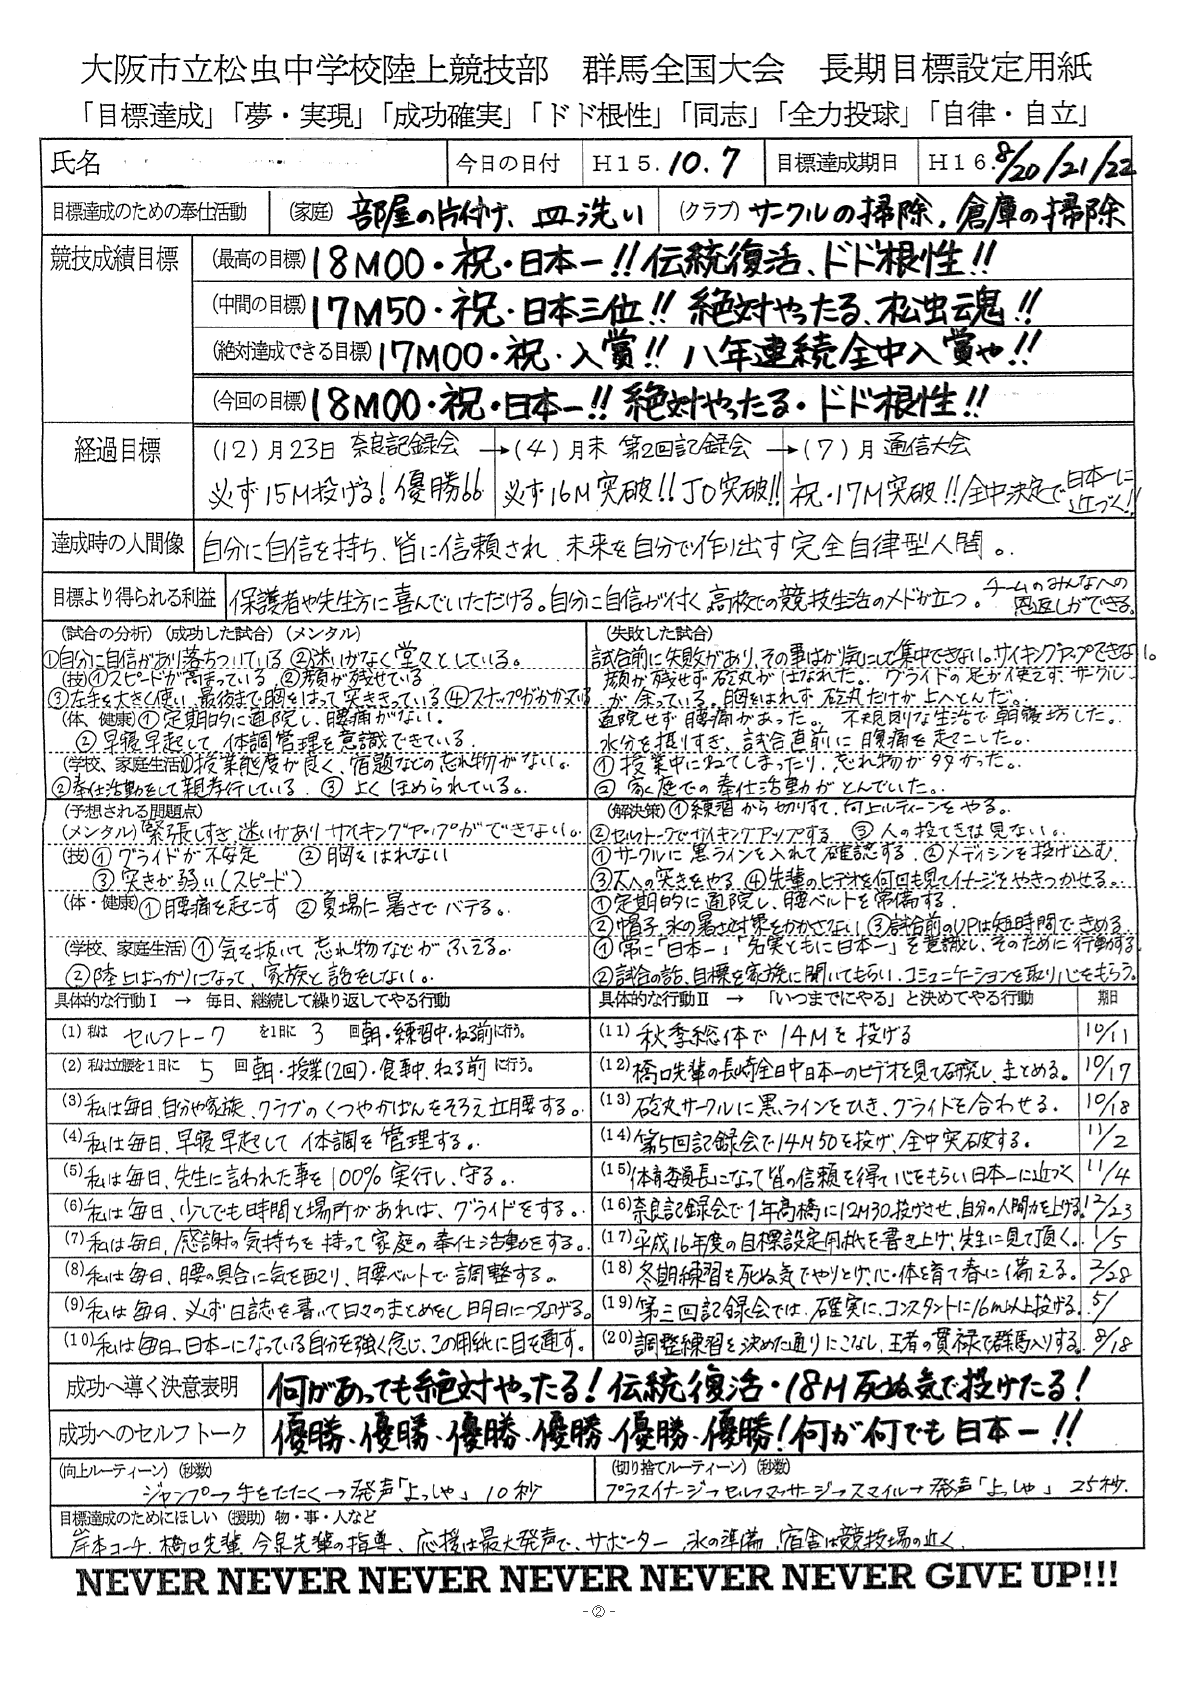 大阪市立松虫中学校陸上競技部　群馬全国大会　長期目標設定用紙
「目標達成」「夢・実現」「成功確実」「ドド根性」「同志」「全力投球」「自律・自立」
氏名　今日の日付　H15.10.7　目標達成期日　H16.8/20/21/22
目標達成のための奉仕活動　(家庭) 部屋の片付け、皿洗い　(クラブ) サークルの掃除,倉庫の掃除
競技成績目標　(最高の目標) 18M00・祝・日本一!!伝統復活、ドド根性!!
(中間の目標) 17M50・祝・日本三位!! 絶対やったる、松虫魂!!
(絶対達成できる目標) 17M00・祝・入賞!! 八年連続全中入賞や!!
(今回の目標) 18M00・祝・日本一!! 絶対やったる・ドド根性!!
経過目標　(12)月23日 奈良記録会→(4)月末 第2回記録会→(7)月 通信大会
必ず15M投げる!優勝　必ず16M突破!!JO突破!!　祝・17M突破!!全中決定で日本一に近づく!!
達成時の人間像　自分に自信を持ち、皆に信頼され、未来を自分で作り出す完全自律型人間。
目標より得られる利益　保護者や先生方に喜んでいただける。自分に自信が付く 高校での競技生活のメドが立つ。チームのみんなへの恩返しができる。
(試合の分析) (成功した試合) (メンタル)
①自分に自信があり落ちついている ②迷いがなく堂々としている。
(技)①スピードが高まっている ②顔が残せている
③左手を大きく使い、最後まで胸をはって突ききっている④スナップがかかっている
(体、健康)①定期的に通院し、腰痛がない。
②早寝早起して 体調管理を意識できている。
(学校、家庭生活)①授業態度が良く、宿題などの忘れ物がない。
②奉仕活動をして親孝行している。③よくほめられている。
(失敗した試合)
試合前に失敗があり、その事ばかり気にして集中できない。サイキングアップできない。
顔が残せず砲丸がはなれた。グライドの足が使えず、サークルが余っている。胸をはれず砲丸だけが上へとんだ。
通院せず腰痛があった。不規則な生活で朝寝坊した。
水分を摂りすぎ、試合直前に腹痛を起こした。
①授業中にねてしまったり、忘れ物が多かった。
②家庭での奉仕活動がとんでいた。
(予想される問題点)
(メンタル)緊張しすぎ、迷いがありサイキングアップができない。
(技)①グライドが不安定　②胸をはれない
③突きが弱い(スピード)
(体・健康)①腰痛を起こす ②夏場に暑さでバテる。
(学校、家庭生活)①気を抜いて忘れ物などがふえる。
②陸上ばっかりになって、家族と話をしない。
(解決策)①練習から切りすて、向上ルーティーンをやる。
②セルフトークでサイキングアップする ③人の投てきは見ない。
①サークルに黒ラインを入れて確認する ②メディシンを投げ込む
③大への突きをやる ④先輩のビデオを何回も見てイメージをやきつかせる。
①定期的に通院し、腰ベルトを常備する。
②帽子、氷の暑さ対策をかかさない ③試合前のUPは短時間できめる。
①常に「日本一」「名実ともに日本一」を意識し、そのために行動する
②試合の話、目標を家族に聞いてもらい、コミュニケーションを取り心をもらう。
具体的な行動Ⅰ　→　毎日、継続して繰り返してやる行動
(1)私は セルフトーク を1日に 3 回朝・練習中・ねる前に行う。
(2)私は立腰を1日に 5 回朝・授業(2回)・食事、ねる前に行う。
(3)私は毎日、自分や家族、クラブのくつやかばんをそろえ立腰する。
(4)私は毎日、早寝早起して体調を管理する。
(5)私は毎日、先生に言われた事を100%実行し、守る。
(6)私は毎日、少しでも時間と場所があれば、グライドをする。
(7)私は毎日、感謝の気持ちを持って家庭の奉仕活動をする。
(8)私は毎日、腰の具合に気を配り、腰ベルトで調整する。
(9)私は毎日、必ず日誌を書いて日々のまとめをし明日につなげる。
(10)私は毎日、日本一になっている自分を強く感じ、この用紙に目を通す。
具体的な行動Ⅱ　→　「いつまでにやる」と決めてやる行動　期日
(11)秋季総体で14Mを投げる　10/11
(12)橋口先輩の長崎全日中日本一のビデオを見て研究し、まとめる。10/17
(13)砲丸サークルに黒ラインをひき、グライドを合わせる。10/18
(14)第5回記録会で14M50を投げ、全中突破する。11/2
(15)体育委員長になって皆の信頼を得て心をもらい日本一に近づく 11/4
(16)奈良記録会で1年高橋に12M30投げさせ、自分の人間力を上げる!12/23
(17)平成16年度の目標設定用紙を書き上げ、先生に見て頂く。1/5
(18)冬期練習を死ぬ気でやりとげ、心・体を育て春に備える。2/28
(19)第三回記録会では、確実に、コンスタントに16m以上投げる。5/
(20)調整練習を決めた通りにこなし、王者の貫禄で群馬入りする。8/18
成功へ導く決意表明　何があっても絶対やったる!伝統復活・18M死ぬ気で投げたる!
成功へのセルフトーク　優勝、優勝、優勝、優勝、優勝、優勝!何が何でも日本一!!
(向上ルーティーン) (秒数)
ジャンプ→手をたたく→発声「よっしゃ」10秒
(切り捨てルーティーン) (秒数)
プラスイメージ→セルフマッサージ→スマイル→発声「よっしゃ」25秒
目標達成のためにほしい (援助) 物・事・人など
岸本コーチ、橋口先輩、今泉先輩の指導、応援は最大発声で、サポーター、氷の準備、宿舎は競技場の近く
NEVER NEVER NEVER NEVER NEVER NEVER GIVE UP!!!
-②-